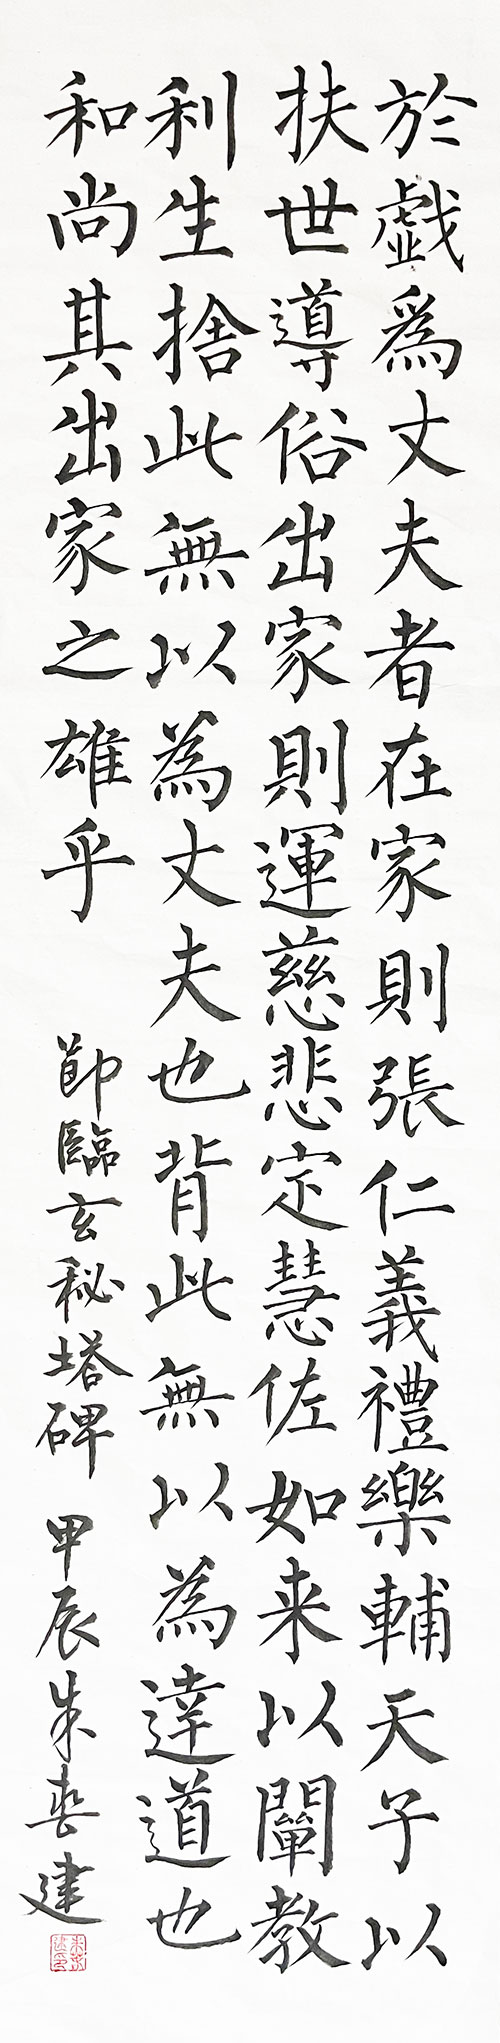 於戲爲丈夫者在家則張仁義禮樂輔天子以
扶世導俗出家則運慈悲定慧佐如来以闡教
利生捨此無以為丈夫也背此無以為達道也
和尚其出家之雄乎 節臨玄秘塔碑 甲辰朱建